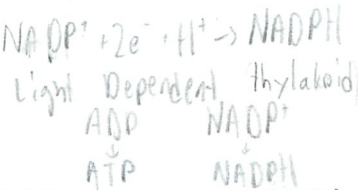 NADP⁺ + 2e⁻ + H⁺ → NADPH
Light Dependent thylakoid
ADP NADP⁺
↓ ↓
ATP NADPH